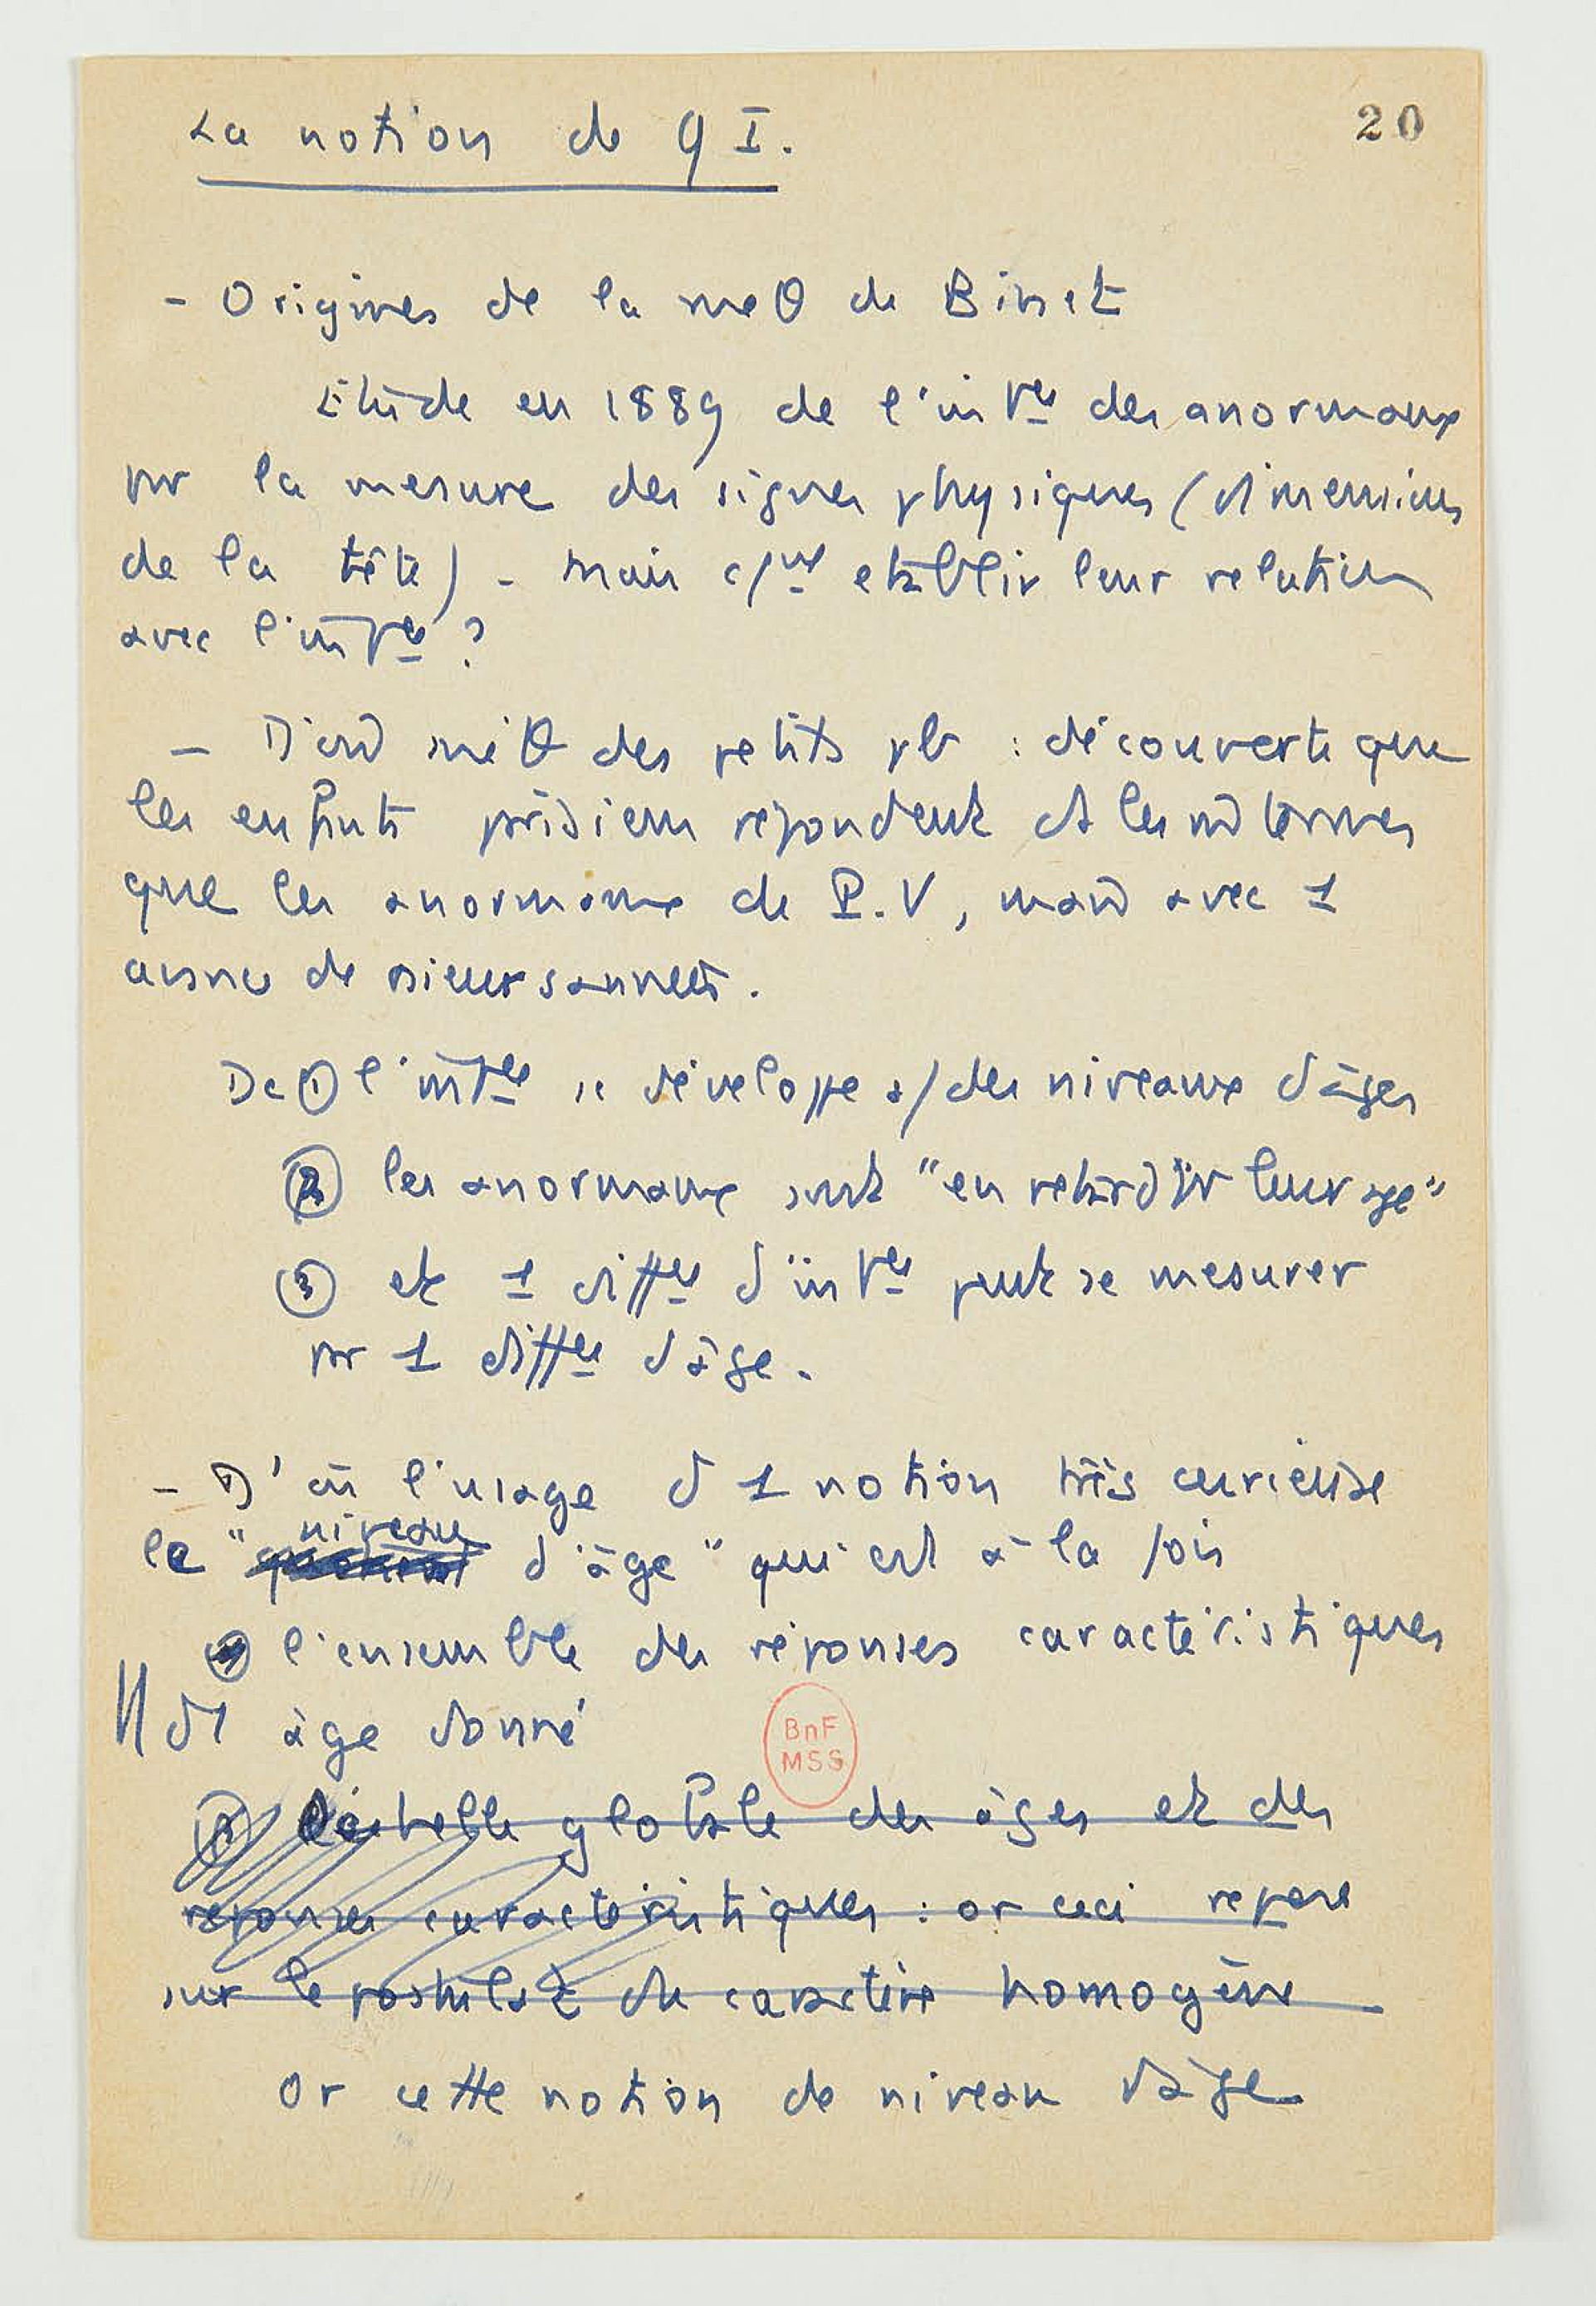 La notion de QI.
20
- Origines de la méθ de Binet
Etude en 1889 de l'intce des anormaux
pr la mesure des signes physiques (dimensions
de la tête) - Mais c/nt etablir leur relation
avec l'intce ?
- D'où méθ des petits pb : découverte que
les enfants parisiens répondent ds les m̂ termes
que les anormaux de P.V, mais avec 1
avance de plusieurs années.
Dc ① l'intce se développe s/ des niveaux d'âges
② les anormaux sont "en retard sur leur age"
③ et 1 diffce d'intce peut se mesurer
pr 1 diffce d'âge.
- D'où l'usage d 1 notion très curieuse
niveau
le " d'âge" qui est à la fois
l'ensemble des réponses caractéristiques
d1 âge donné
BnF
MSS
② L'échelle globale des âges et des
reponses caractéristiques : or ceci repose
sur le postulat du caractère homogène
Or cette notion de niveau d'âge